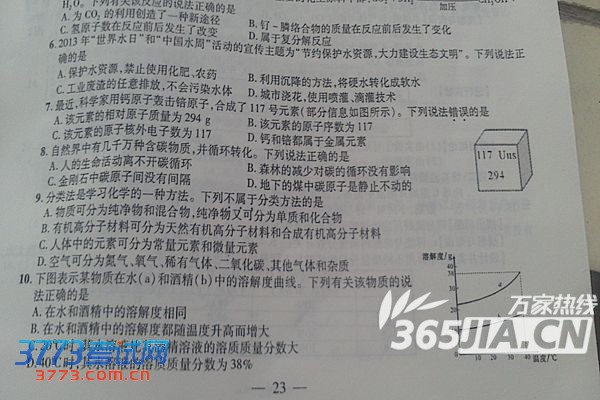 H₂O。下列有关该反应的说法正确的是
加压
A. 为CO₂的利用创造了一种新途径
B. 钌－膦络合物的质量在反应前后发生了变化
C. 氢原子数在反应前后发生了改变
D. 属于复分解反应
6. 2013年“世界水日”和“中国水周”活动的宣传主题为“节约保护水资源，大力建设生态文明”。下列说法正
确的是
A. 保护水资源，禁止使用化肥、农药
B. 利用沉降的方法，将硬水转化成软水
C. 工业废渣的任意排放，不会污染水体
D. 城市浇花，使用喷灌、滴灌技术
7. 最近，科学家用钙原子轰击锫原子，合成了117号元素（部分信息如图所示）。下列说法错误的是
A. 该元素的相对原子质量为294 g
B. 该元素的原子序数为117
C. 该元素的原子核外电子数为117
D. 钙和锫都属于金属元素
117 Uns
294
8. 自然界中有几千万种含碳物质，并循环转化。下列说法正确的是
A. 人的生命活动离不开碳循环
B. 森林的减少对碳的循环没有影响
C. 金刚石中碳原子间没有间隔
D. 地下的煤中碳原子是静止不动的
9. 分类法是学习化学的一种方法。下列不属于分类方法的是
A. 物质可分为纯净物和混合物，纯净物又可分为单质和化合物
B. 有机高分子材料可分为天然有机高分子材料和合成有机高分子材料
C. 人体中的元素可分为常量元素和微量元素
D. 空气可分为氮气、氧气、稀有气体、二氧化碳、其他气体和杂质
10. 下图表示某物质在水(a)和酒精(b)中的溶解度曲线。下列有关该物质的说
法正确的是
A. 在水和酒精中的溶解度相同
B. 在水和酒精中的溶解度都随温度升高而增大
酒精溶液的溶质质量分数大
D. 40℃时，其水溶液的溶质质量分数为38%
溶解度/g
a
10 20 30 40 温度/℃
— 23 —
万家热线
365JIA.CN
3773考试网
3773.com.cn